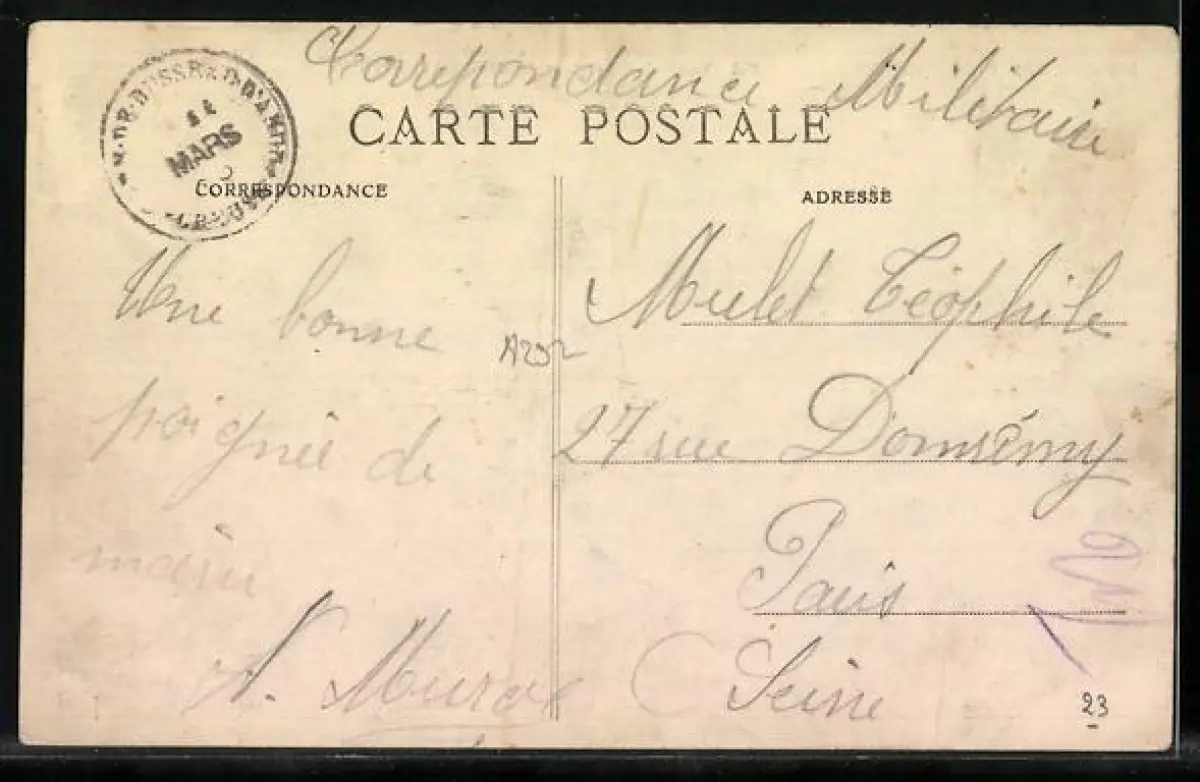 Correpondance Militaire
CARTE POSTALE
MARS
CORRESPONDANCE
ADRESSE
Une bonne
poignée de
main
Mulet Téophile
27 rue Domrémy
Paris
Seine
23